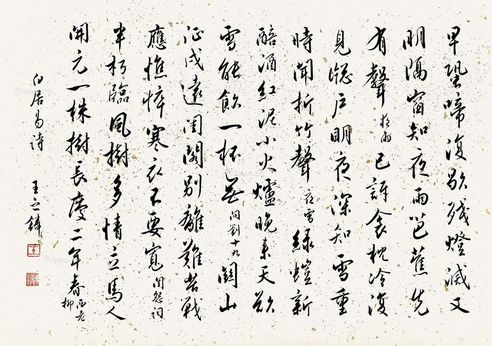 早蛩啼復歇殘燈滅又
明隔窗知夜雨芭蕉先
有聲 夜雨 已訝衾枕冷復
見牕戶明夜深知雪重
時聞折竹聲 夜雪 綠螘新
醅酒紅泥小火爐晚來天欲
雪能飲一杯無 問劉十九 關山
征戍遠閨閣別離難苦戰
應憔悴寒衣不要寬 閨怨詞
半朽臨風樹多情立馬人
開元一株樹長慶二年春 西老柳
白居易詩 王之鏻